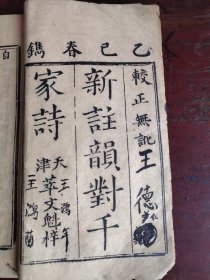 乙巳春鐫
較正無訛
新註韻對千
家詩
天津萃文魁梓
王德
王鴻年
王鴻
自